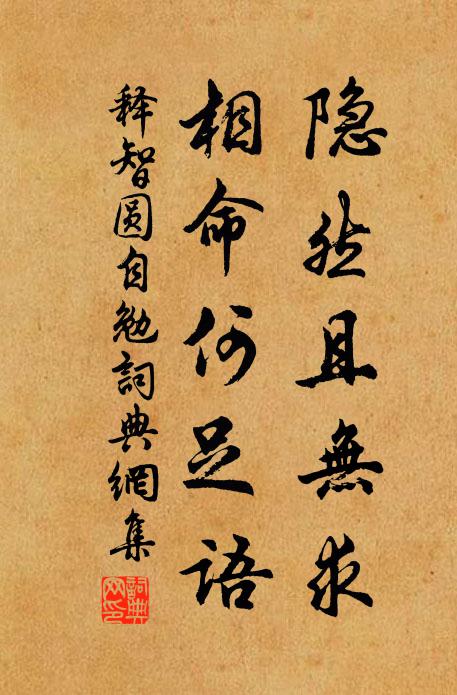 隐然且無求
相命何足语
释智圆自勉詞典網集
詞典网印